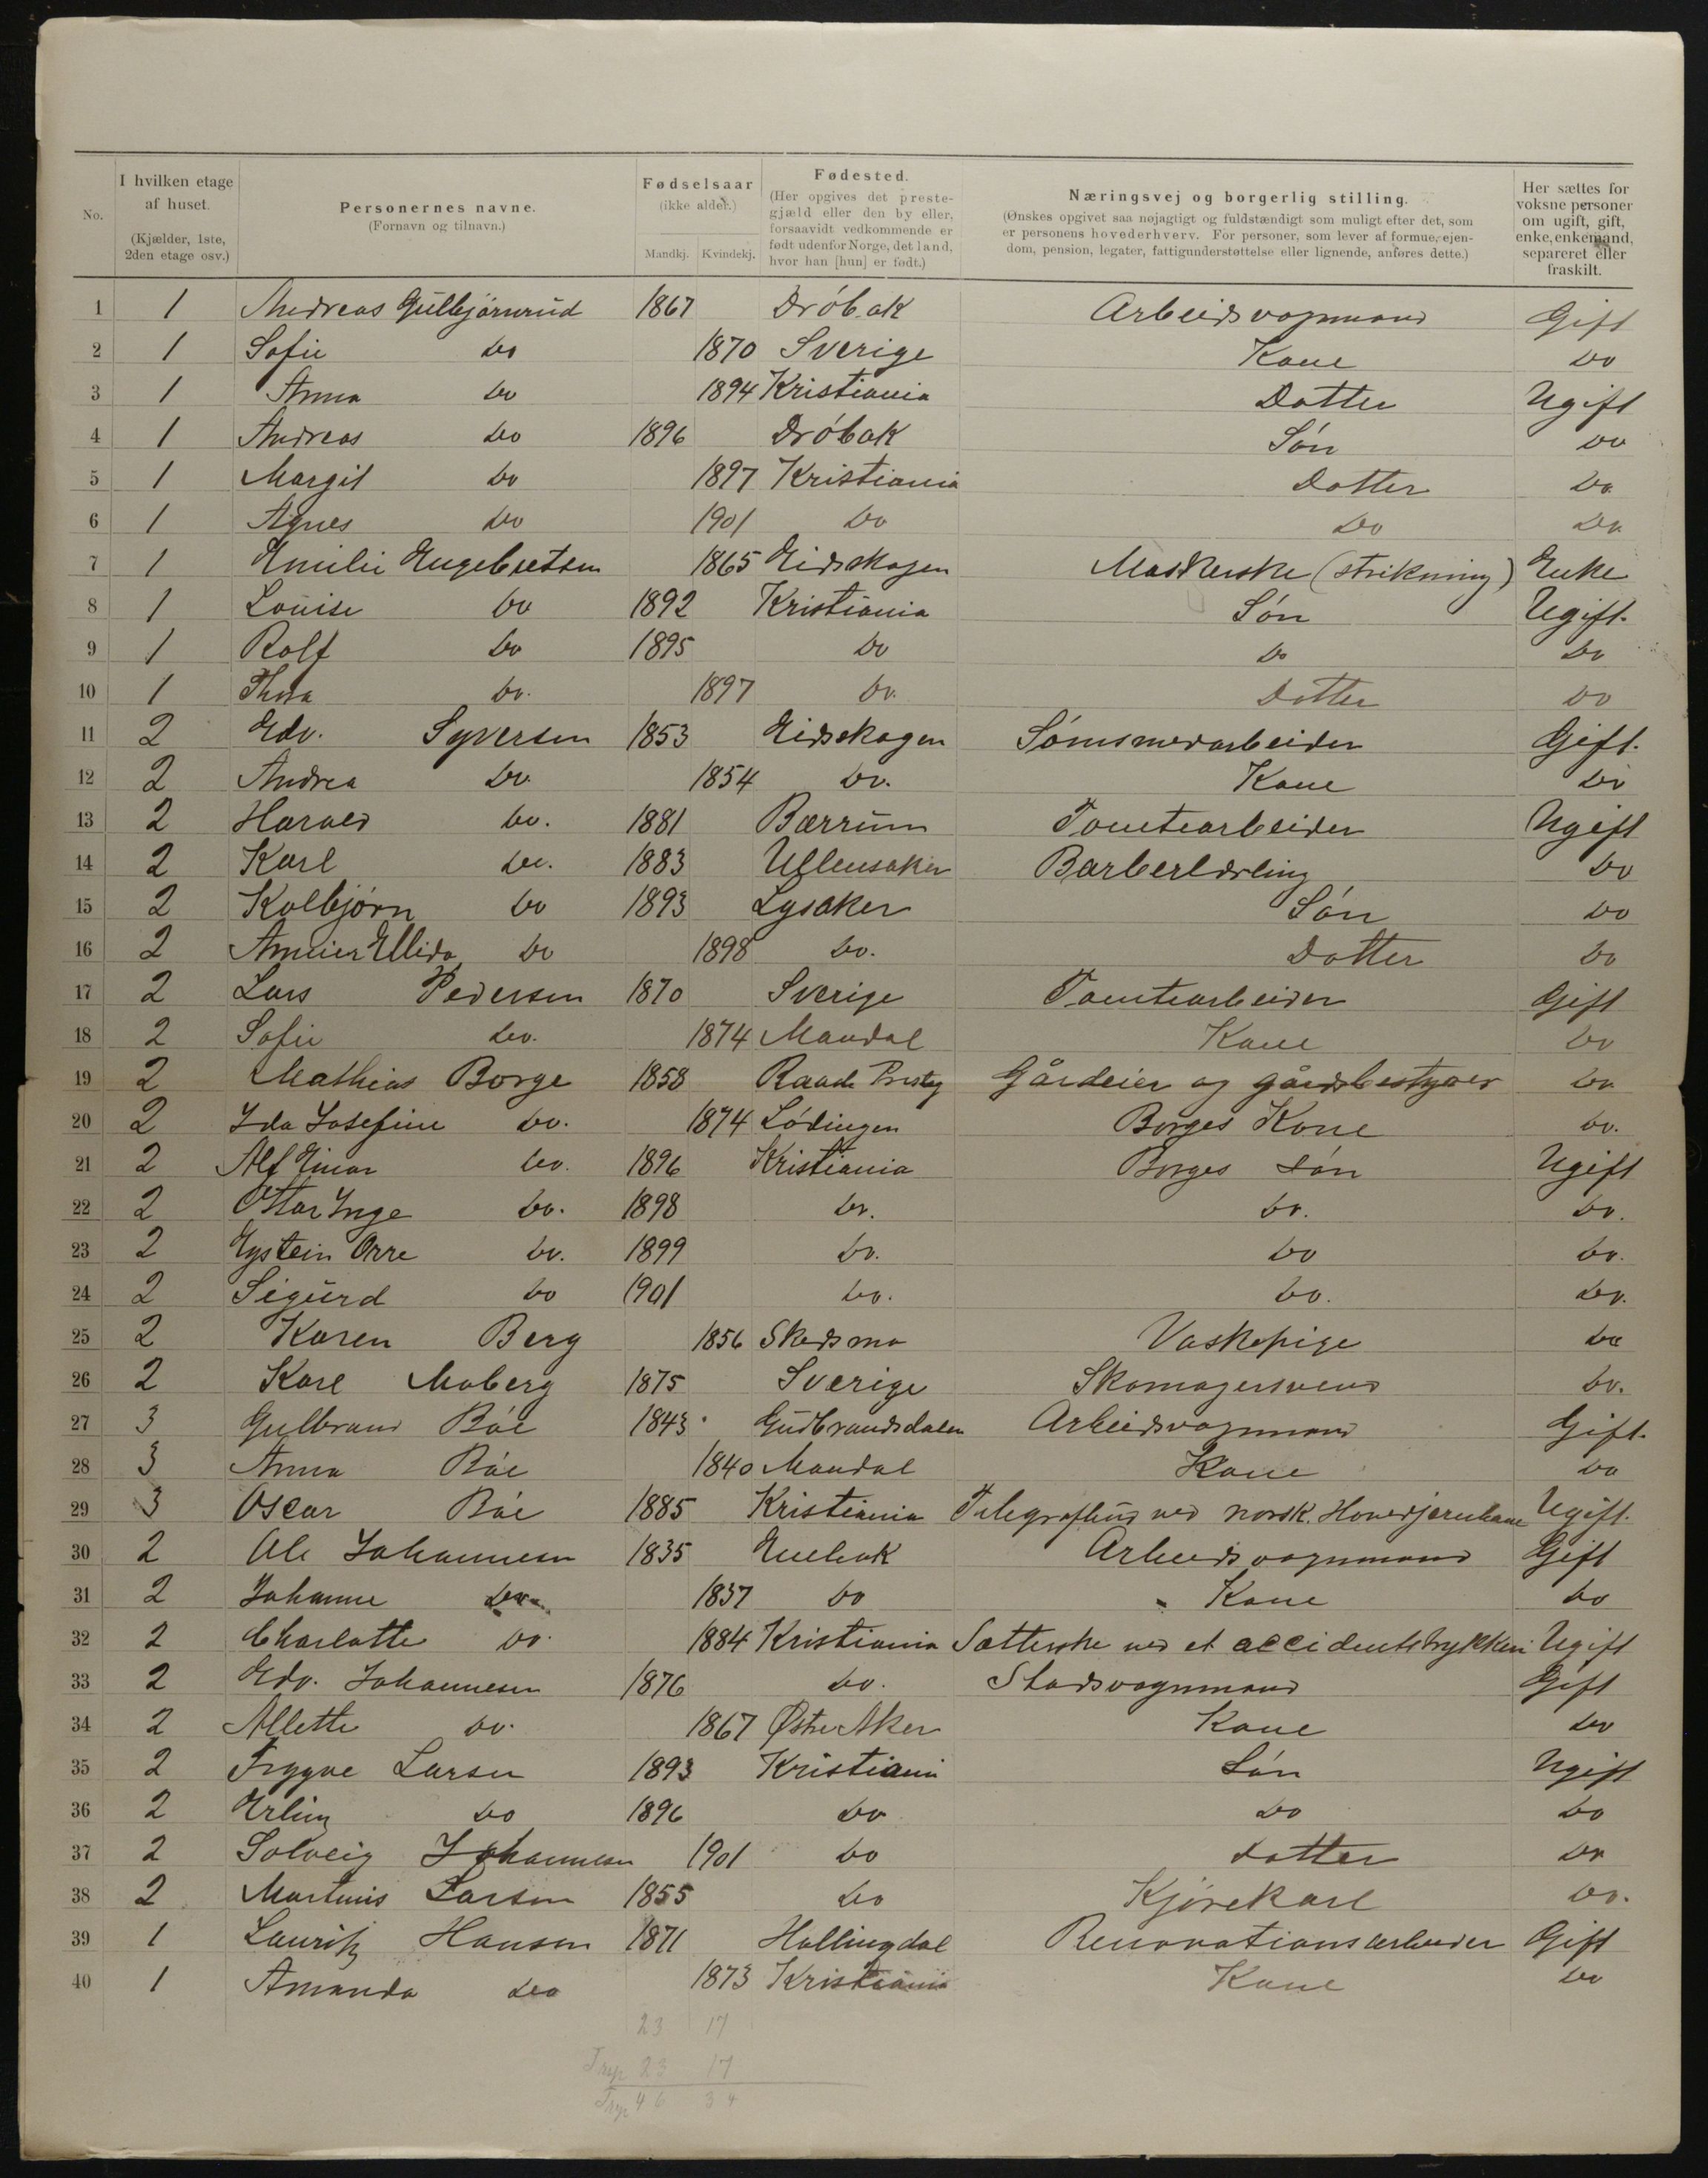 No.
I hvilken etage af huset. (Kjælder, 1ste, 2den etage osv.)
Personernes navne. (Fornavn og tilnavn.)
Fødselsaar (ikke alder.) Mandkj. Kvindekj.
Fødested. (Her opgives det prestegjæld eller den by eller, forsaavidt vedkommende er født udenfor Norge, det land, hvor han [hun] er født.)
Næringsvej og borgerlig stilling. (Ønskes opgivet saa nøjagtigt og fuldstændigt som muligt efter det, som er personens hovederhverv. For personer, som lever af formue, ejendom, pension, legater, fattigunderstøttelse eller lignende, anføres dette.)
Her sættes for voksne personer om ugift, gift, enke, enkemand, separeret eller fraskilt.
1 1 Andreas Gulbjørnrud 1867 Drøbak Arbeidsvognmand Gift
2 1 Sofie do 1870 Sverige Kone do
3 1 Anna do 1894 Kristiania Datter Ugift
4 1 Andreas do 1896 Drøbak Søn do
5 1 Margit do 1897 Kristiania Datter do
6 1 Agnes do 1901 do do do
7 1 Emilie Engebretsen 1865 Eidskogen Maskerske (strikning) Enke
8 1 Louise do 1892 Kristiania Søn Ugift.
9 1 Rolf do 1895 do do do
10 1 Thora do. 1897 do. Datter do
11 2 Edv. Syversen 1853 Eidskogen Sømsmedarbeider Gift.
12 2 Andrea do. 1854 do. Kone do
13 2 Harald do. 1881 Bærrum Tomtearbeider Ugift
14 2 Karl do. 1883 Ullensaker Barberlærling do
15 2 Kolbjørn do 1893 Lysaker Søn do
16 2 Ellida do 1898 do. Datter do
17 2 Lars Pedersen 1870 Sverige Tomtearbeider Gift
18 2 Sofie do. 1874 Mandal Kone do
19 2 Mathias Borge 1858 Raade Prestg Gårdeier og gårdsbestyrer do
20 2 Ida Josefine do. 1874 Lødingen Borges Kone do.
21 2 Alf Einar do. 1896 Kristiania Borges Søn Ugift
22 2 Ottar Inge do. 1898 do. do. do.
23 2 Eystein Orre do. 1899 do. do do.
24 2 Sigurd do 1901 do. do. do.
25 2 Karen Berg 1856 Skedsmo Vaskepige do
26 2 Karl Moberg 1875 Sverige Skomagersvend do.
27 3 Gulbrand Bøe 1843 Gudbrandsdalen Arbeidsvognmand Gift.
28 3 Anna Bøe 1840 Mandal Kone do
29 3 Oscar Bøe 1885 Kristiania Telegrafbud ved norsk. Hovedjernbane Ugift.
30 2 Ole Johannesen 1835 Enebak Arbeidsvognmand Gift
31 2 Johanne do 1837 do Kone do
32 2 Charlotte do. 1884 Kristiania Sætterske ved et accidentstrykkeri Ugift
33 2 Edv. Johannesen 1876 do. Stadsvognmand Gift
34 2 Allette do. 1867 Østre Aker Kone do
35 2 Trygve Larsen 1893 Kristiania Søn Ugift
36 2 Erling do 1896 do do do
37 2 Solveig Johannesen 1901 do datter do
38 2 Martinis Larsen 1855 do Kjørekarl do.
39 1 Lauritz Hansen 1871 Hallingdal Renovationsarbeider Gift
40 1 Amanda do 1873 Kristiania Kone do
23 17
23 17
46 34